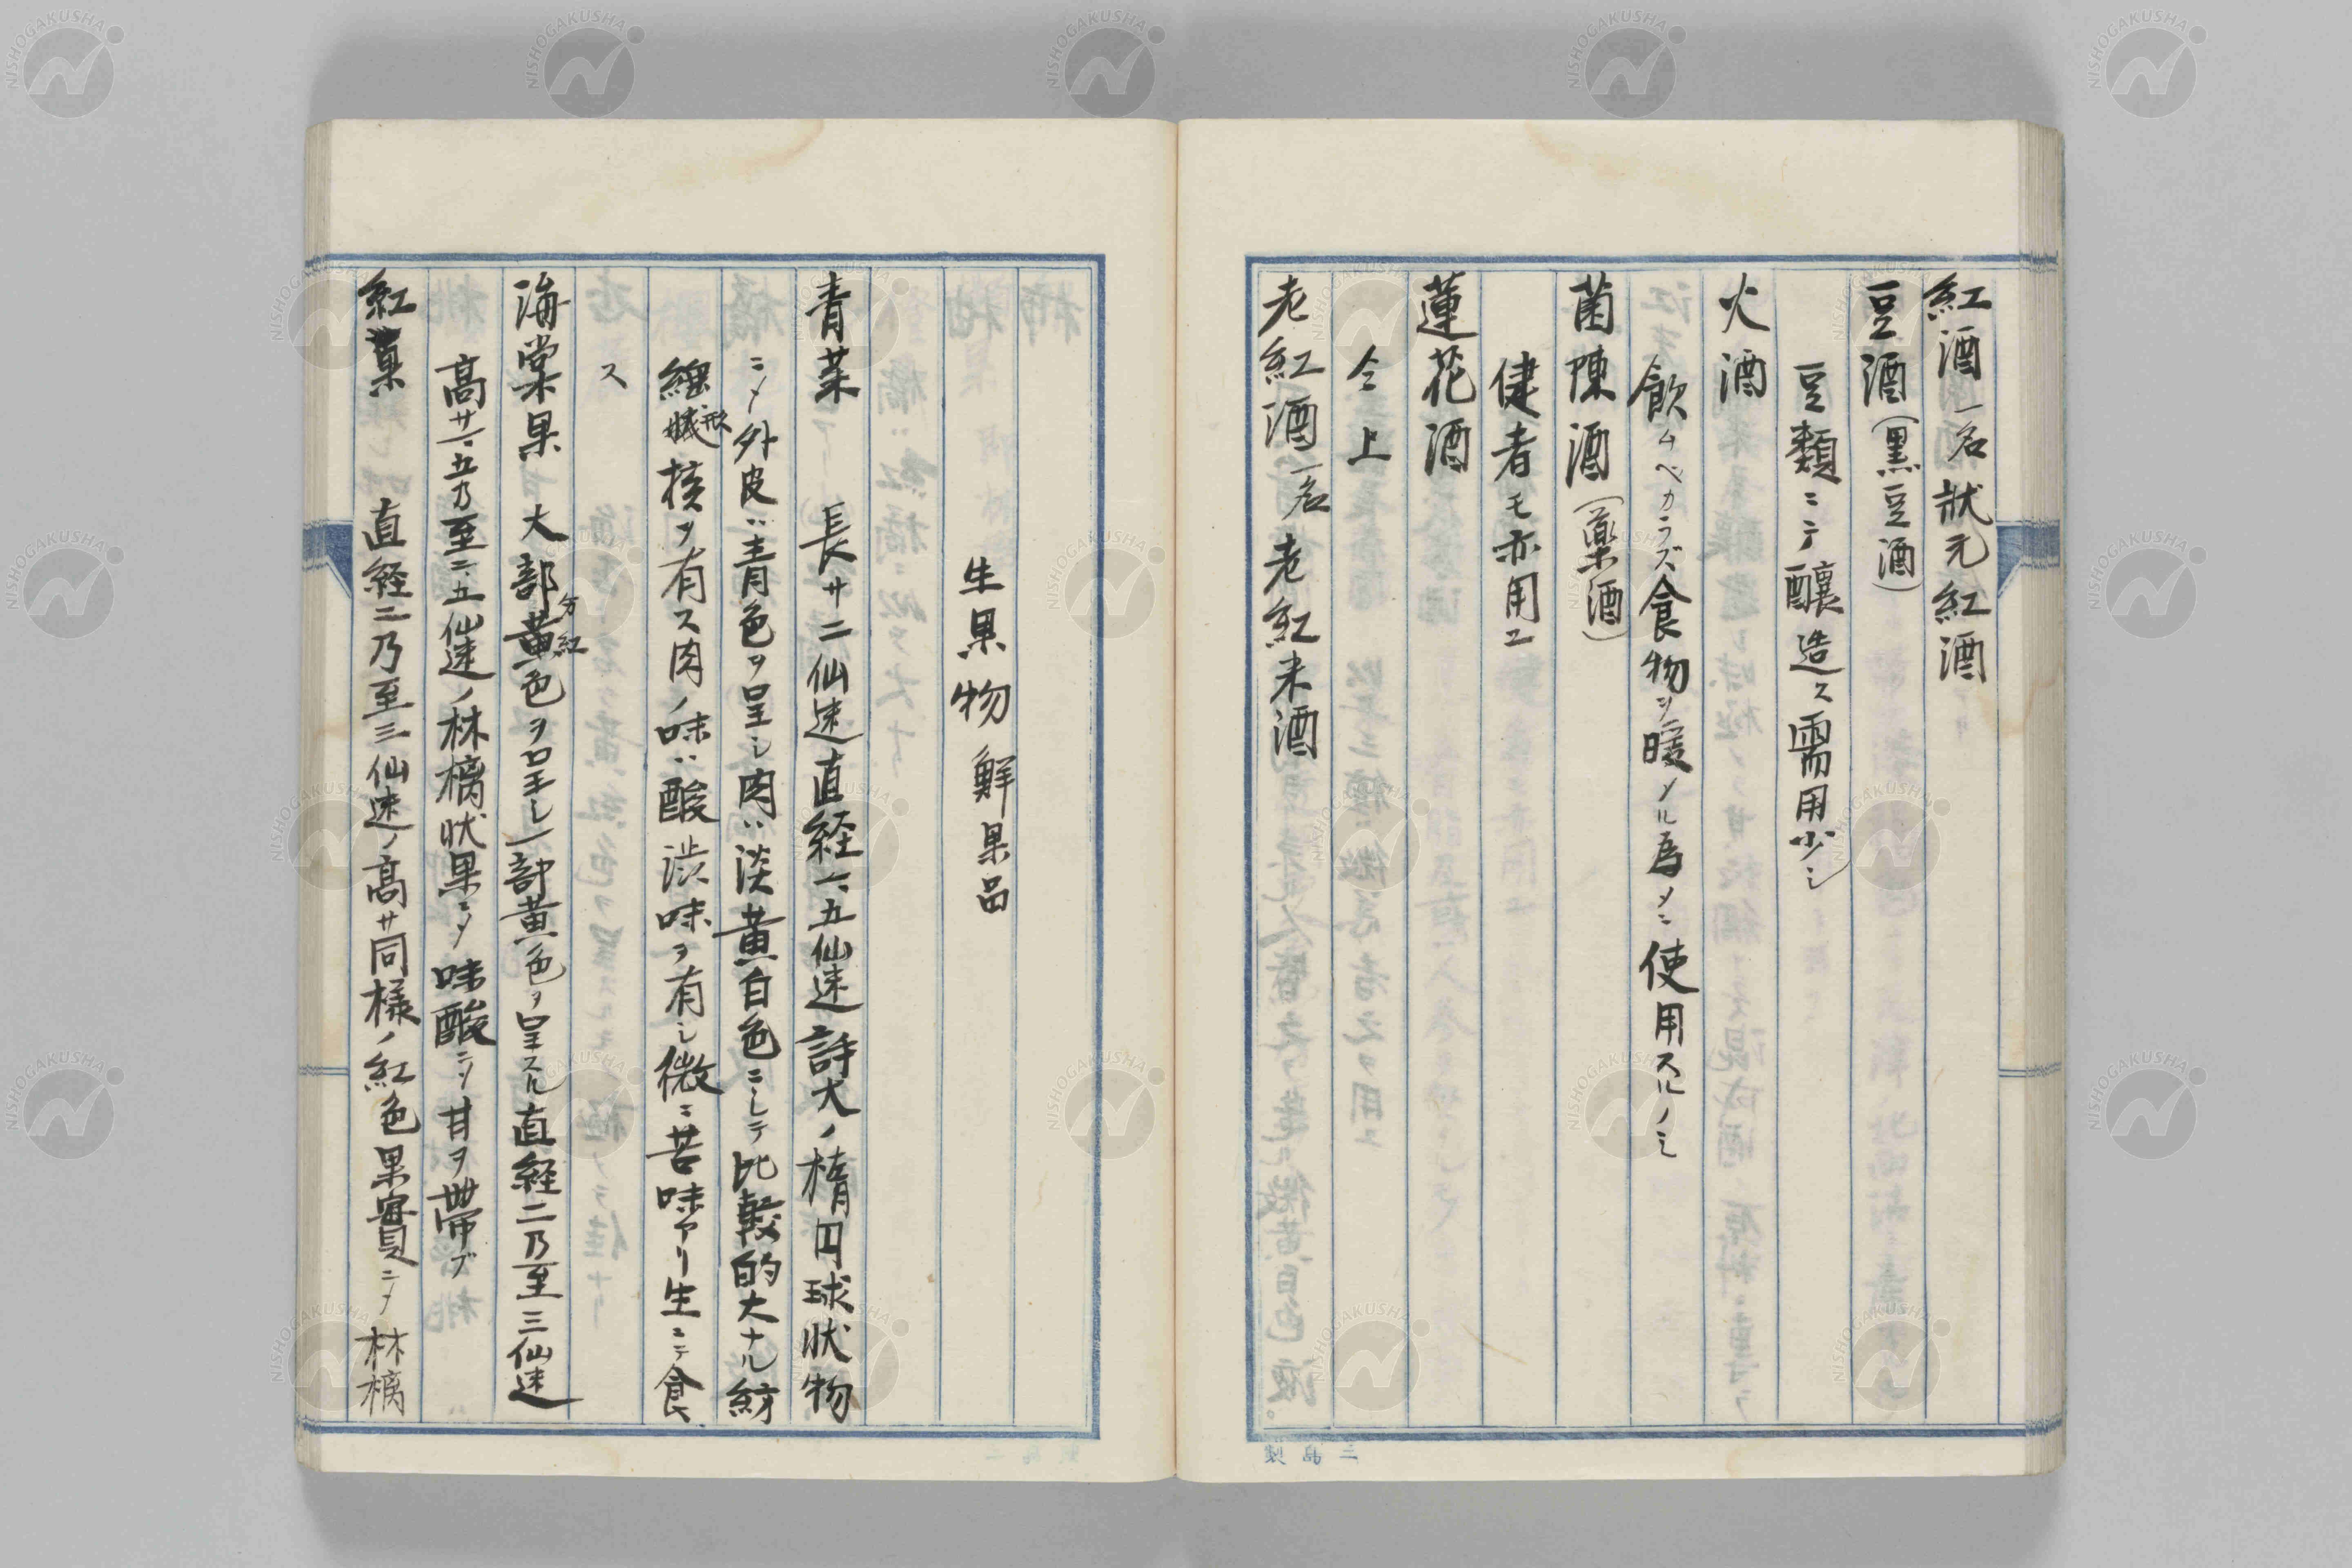 紅酒 一名 狀元紅酒
豆酒(黒豆酒)
豆類ニテ醸造ス需用少シ
火酒
飲ムベカラズ食物ヲ暖メル為メニ使用スルノミ
茵陳酒(薬酒)
健者モ亦用エ
蓮花酒
仝上
老紅酒 一名 老紅米酒
生果物 鮮果品
青菓 長サ二仙迷直経一、五仙迷許大ノ楕円球状物
ニシテ外皮ハ青色ヲ呈シ肉ハ淡黄白色ニシテ比較的大ナル紡
形核ヲ有ス肉ノ味ハ酸渋味ヲ有シ微ニ苦味アリ生ニテ食
ス
海棠果 大部分紅色ヲ呈シ一部黄色ヲ呈スル直経二乃至三仙迷
高サ一、五乃至二、五仙迷ノ林檎状果ニシテ味酸ニシテ甘ヲ帯ブ
紅菓 直経二乃至三仙迷ノ高サ同様ノ紅色果實ニシテ林檎
三島製
NISHOGAKUSHA